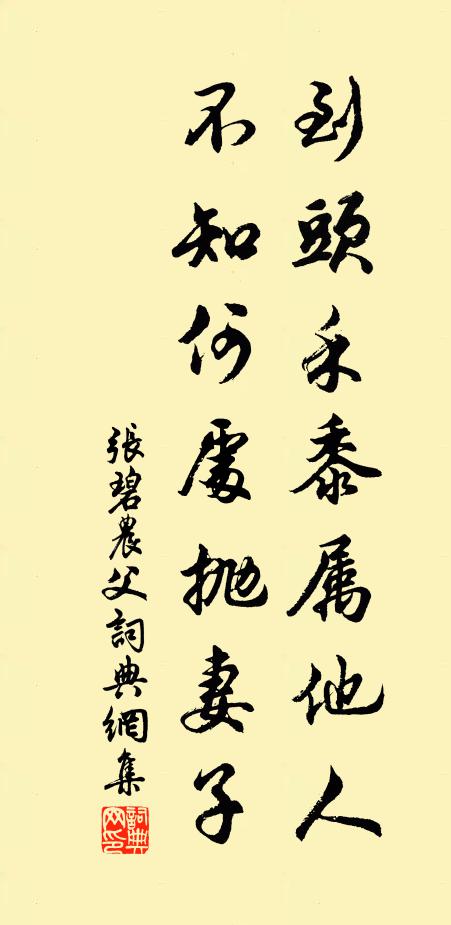 到頭禾黍属他人
不知何處抛妻子
張碧農父詞典網集
詞典网印